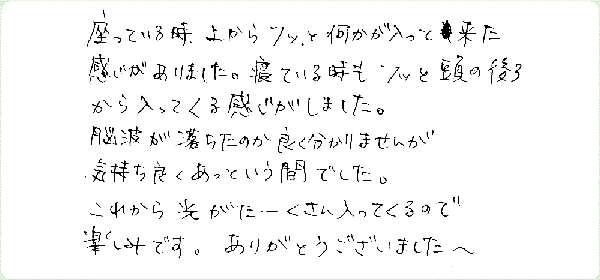 座っている時、上からツッと何かが入って来た
感じがありました。寝ている時もツッと頭の後ろ
から入ってくる感じがしました。
脳波が落ちたのか良く分かりませんが
気持ち良くあっという間でした。
これから光がたーくさん入ってくるので
楽しみです。ありがとうございました〜